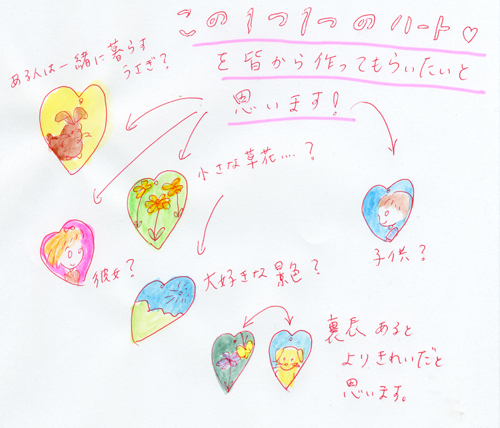 この1つ1つのハート♡
を皆から作ってもらいたいと
思います!
ある人は一緒に暮らす
うさぎ?
小さな草花…?
子供?
彼女?
大好きな景色?
裏表あると
よりきれいだと
思います。